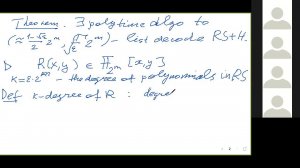 Theorem. ∃ polytime algo to
(≈ (1-√ε)/2 2^m, 2^m) - list decode RS+H.
▷ R(x,y) ∈ F_{2^m} [x,y]
K = ε·2^m - the degree of polynomials in RS
Def k-degree of R : degre